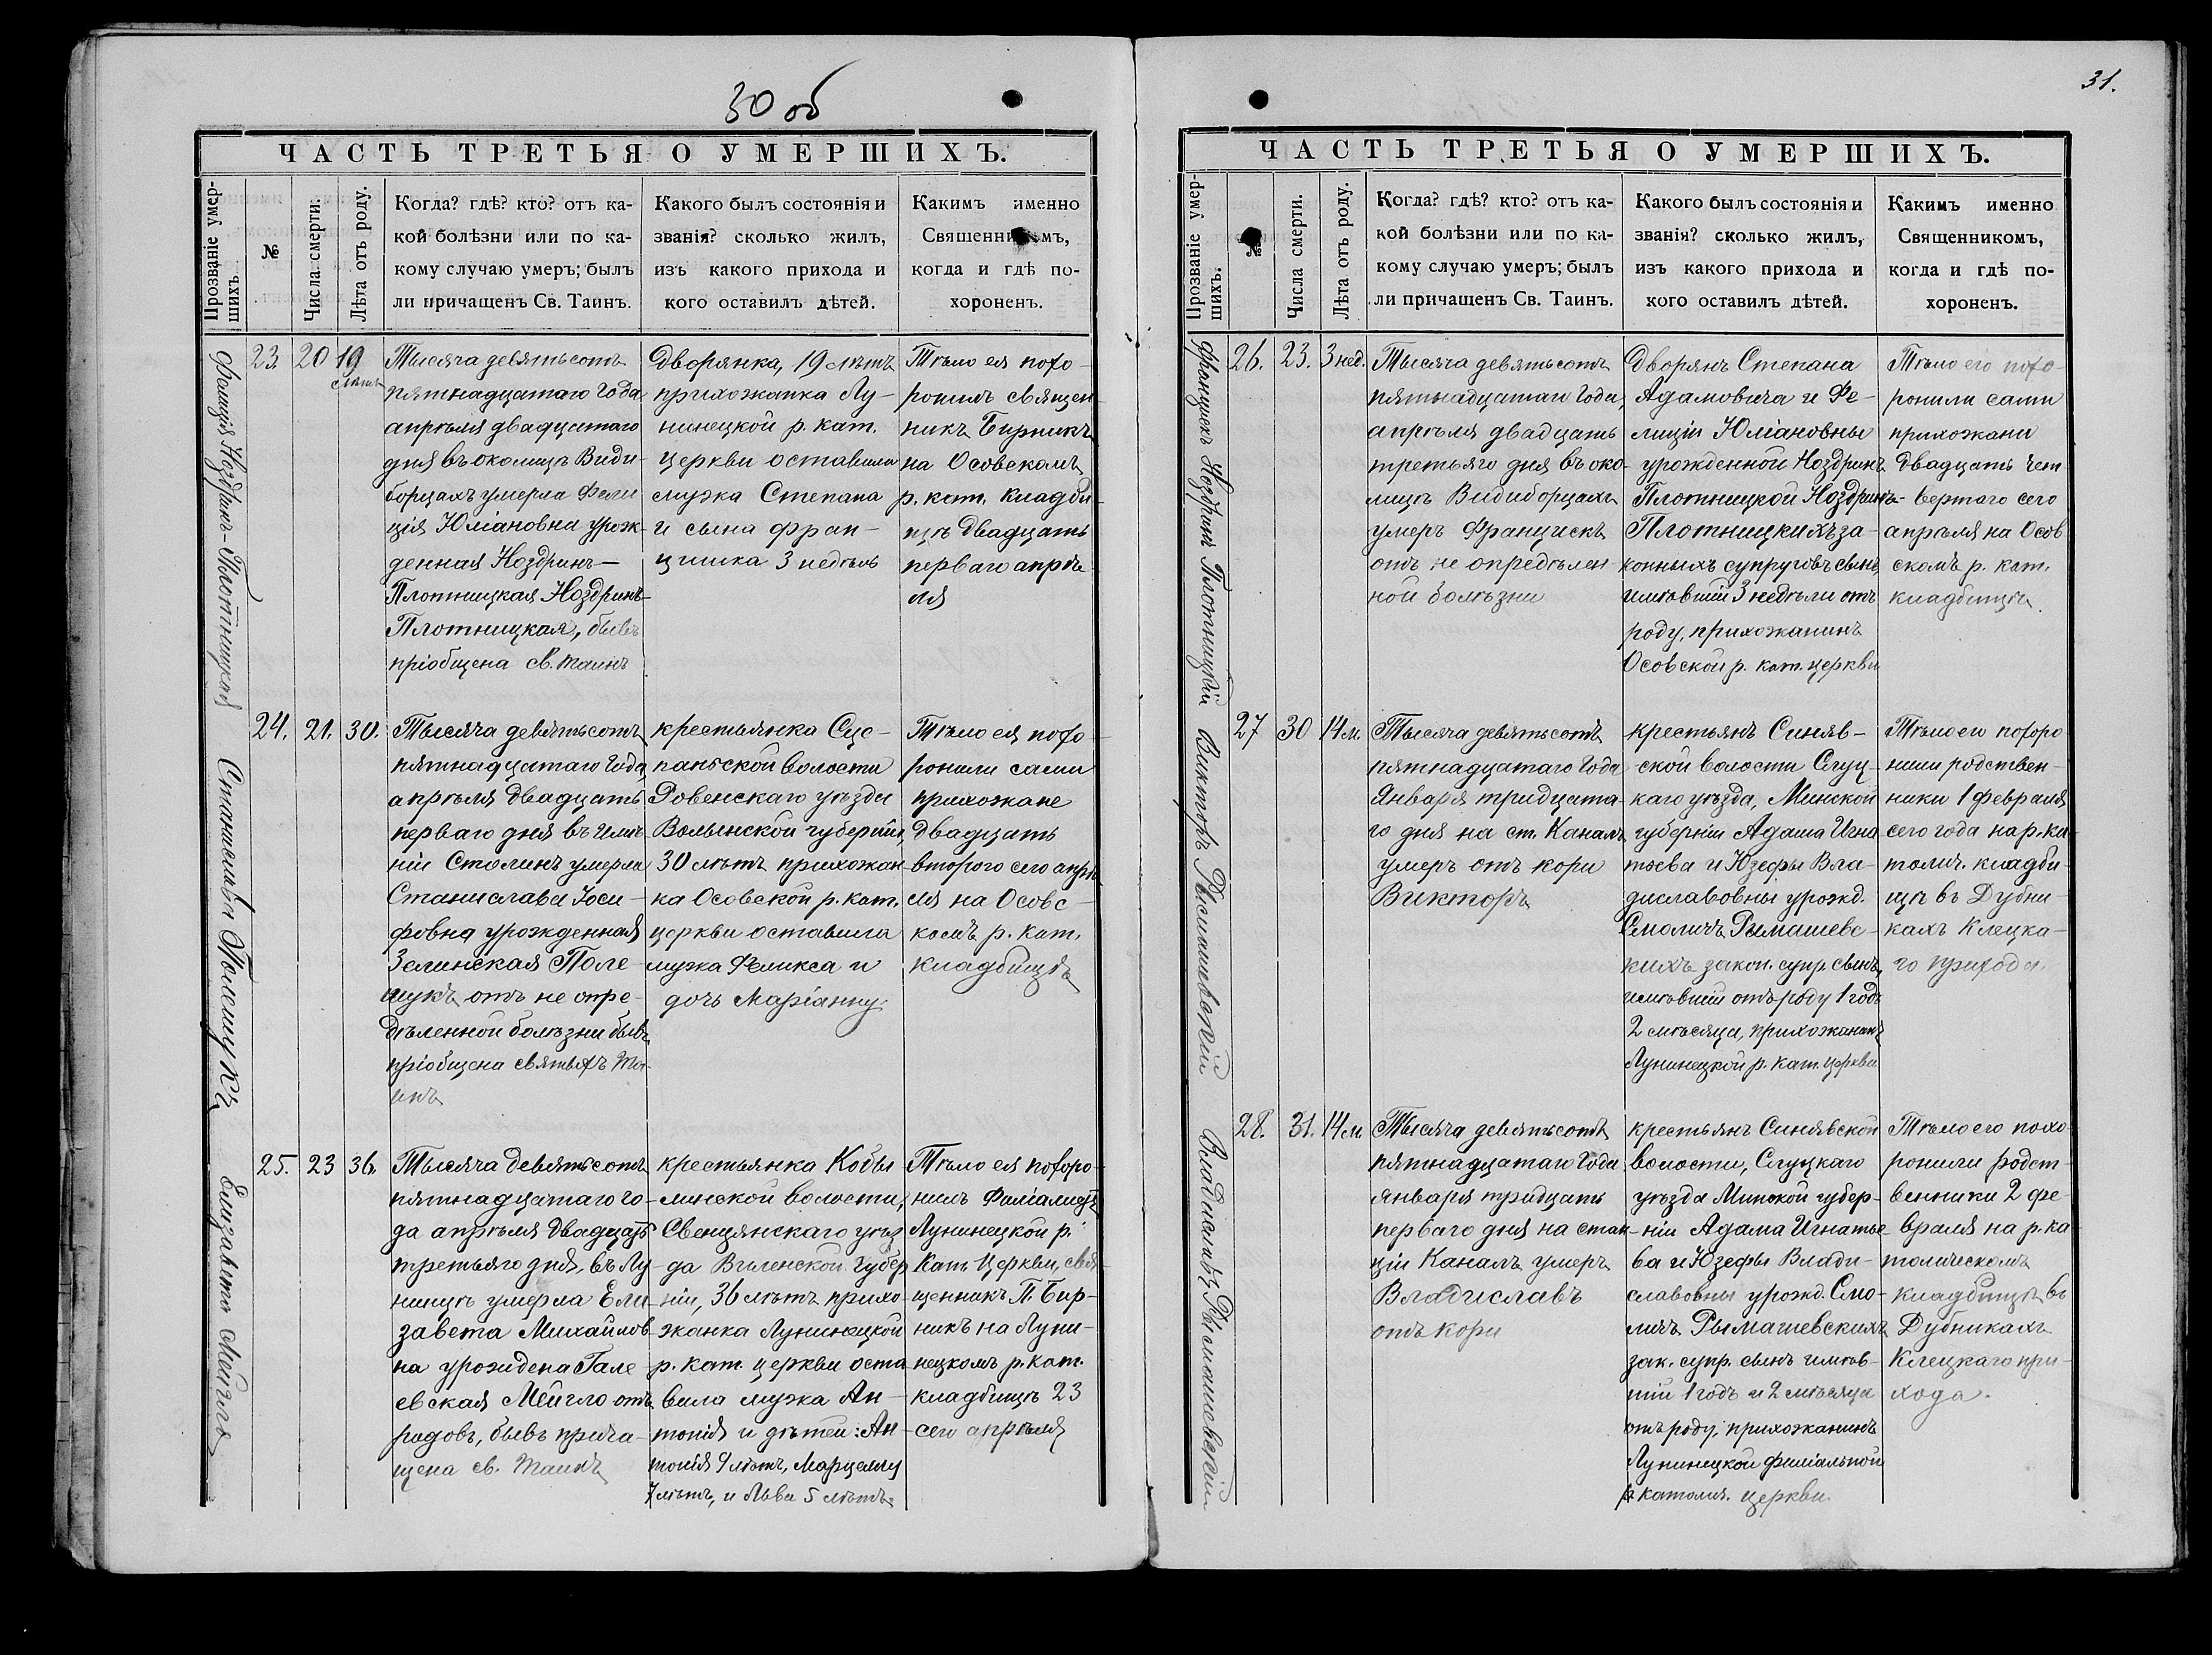 30 об
ЧАСТЬ ТРЕТЬЯ О УМЕРШИХЪ.
Прозваніе умер-
шихъ.
№
Числа смерти.
Лѣта отъ роду.
Когда? гдѣ? кто? отъ ка-
кой болѣзни или по ка-
кому случаю умеръ; былъ
ли причащенъ Св. Таинъ.
Какого былъ состоянія и
званія? сколько жилъ,
изъ какого прихода и
кого оставилъ дѣтей.
Какимъ именно
Священникомъ,
когда и гдѣ по-
хороненъ.
Фелиція Ноздринъ-Плотницкая
23. 20 19
лѣтъ
Тысяча девятьсотъ
пятнадцатаго года
апрѣля двадцатаго
дня въ околицѣ Види-
борцахъ умерла Фели
ція Юліановна урож-
денная Ноздринъ-
Плотницкая Ноздринъ-
Плотницкая, бывъ
пріобщена св. таинъ
Дворянка, 19 лѣтъ
прихожанка Лу-
нинецкой р. кат.
церкви оставила
мужа Степана
и сына Фран-
цишка 3 недѣль
Тѣло ея похо-
ронилъ священ
никъ Бирникъ
на Осовскомъ
р. кат. кладби-
щѣ двадцать
перваго апрѣ
ля
Станислава Полещукъ
24. 21. 30.
Тысяча девятьсотъ
пятнадцатаго года
апрѣля двадцать
перваго дня въ имѣ
ніи Столинъ умерла
Станислава Іоси-
фовна урожденная
Зелинская Поле-
щукъ отъ не опре-
дѣленной болѣзни бывъ
пріобщена святыхъ та-
инъ
крестьянка Сце-
паньской волости
Ровенскаго уѣзда
Волынской губерніи,
30 лѣтъ прихожан
ка Осовской р. кат.
церкви оставила
мужа Феликса и
дочь Маріанну.
Тѣло ея похо-
ронили сами
прихожане
двадцать
второго сего апрѣ
ля на Осовс-
комъ р. кат.
кладбищѣ
Елизавета Мейгло
25. 23 36.
Тысяча девятьсотъ
пятнадцатаго го-
да апрѣля двадцать
третьяго дня, въ Лу-
нинцѣ умерла Ели-
завета Михайлов
на урождена Гале
евская Мейгло отъ
родовъ, бывъ прича-
щена св. таинъ
крестьянка Кобы
линской волости,
Свенцянскаго уѣз
да Виленской губер
ніи, 36 лѣтъ прихо-
жанка Лунинецкой
р. кат. церкви оста
вила мужа Ан-
тонія и дѣтей: Ан-
тонія 9 лѣтъ, Марцелу
7 лѣтъ, и Льва 5 лѣтъ.
Тѣло ея похоро-
нилъ
Лунинецкой р.
Кат. Церкви, свя-
щенникъ П. Бир-
никъ на Луни-
нецкомъ р. кат.
кладбищѣ 23
сего апрѣля
31.
ЧАСТЬ ТРЕТЬЯ О УМЕРШИХЪ.
Прозваніе умер-
шихъ.
№
Числа смерти.
Лѣта отъ роду.
Когда? гдѣ? кто? отъ ка-
кой болѣзни или по ка-
кому случаю умеръ; былъ
ли причащенъ Св. Таинъ.
Какого былъ состоянія и
званія? сколько жилъ,
изъ какого прихода и
кого оставилъ дѣтей.
Какимъ именно
Священникомъ,
когда и гдѣ по-
хороненъ.
Францискъ Ноздринъ Плотницкій
26. 23. 3 нед.
Тысяча девятьсотъ
пятнадцатаго года,
апрѣля двадцать
третьяго дня въ око-
лицѣ Видиборцахъ
умеръ Францискъ
отъ не опредѣлен
ной болѣзни
Дворянъ Степана
Адамовича и Фе-
лиціи Юліановны
урожденной Ноздринъ
Плотницкой Ноздринъ-
Плотницкихъ за-
конныхъ супруговъ сынъ,
имѣвшій 3 недѣли отъ
роду, прихожанинъ
Осовской р. кат. церкви
Тѣло его похо-
ронили сами
прихожани
двадцать чет
вертаго сего
апрѣля на Осов
скомъ р. кат.
кладбищѣ.
Викторъ Рымашевскій
27 30 14 м.
Тысяча девятьсотъ
пятнадцатаго года
Января тридцата-
го дня на ст. Каналъ
умеръ отъ кори
Викторъ
крестьянъ Синяв-
ской волости Слуц-
каго уѣзда, Минской
губерніи Адама Игна
тьева и Юзефы Вла-
диславовны урожд.
Смоличъ Рымашевс-
кихъ закон. супр. сынъ,
имѣвшій отъ роду 1 годъ
2 мѣсяца, прихожанинъ
Лунинецкой р. кат. церкви
Тѣло его похоро
нили родствен-
ники 1 февраля
сего года на р. ка-
толич. кладби-
щѣ въ Дубни-
кахъ Клецка-
го прихода.
Владиславъ Рымашевскій
28. 31. 14 м
Тысяча девятьсотъ
пятнадцатаго года
января тридцать
перваго дня на стан-
ціи Каналъ умеръ
Владиславъ
отъ кори
крестьянъ Синявской
волости, Слуцкаго
уѣзда Минской губер-
ніи Адама Игнатье
ва и Юзефы Влади-
славовны урожд. Смо-
личъ Рымашевскихъ
зак. супр. сынъ имѣв-
шій 1 годъ и 2 мѣсяца
отъ роду, прихожанинъ
Лунинецкой филіальной
р. католич. церкви.
Тѣло его похо
ронили родст-
венники 2 фе-
враля на р. ка-
толическомъ
кладбищѣ въ
Дубникахъ
Клецкаго при-
хода.